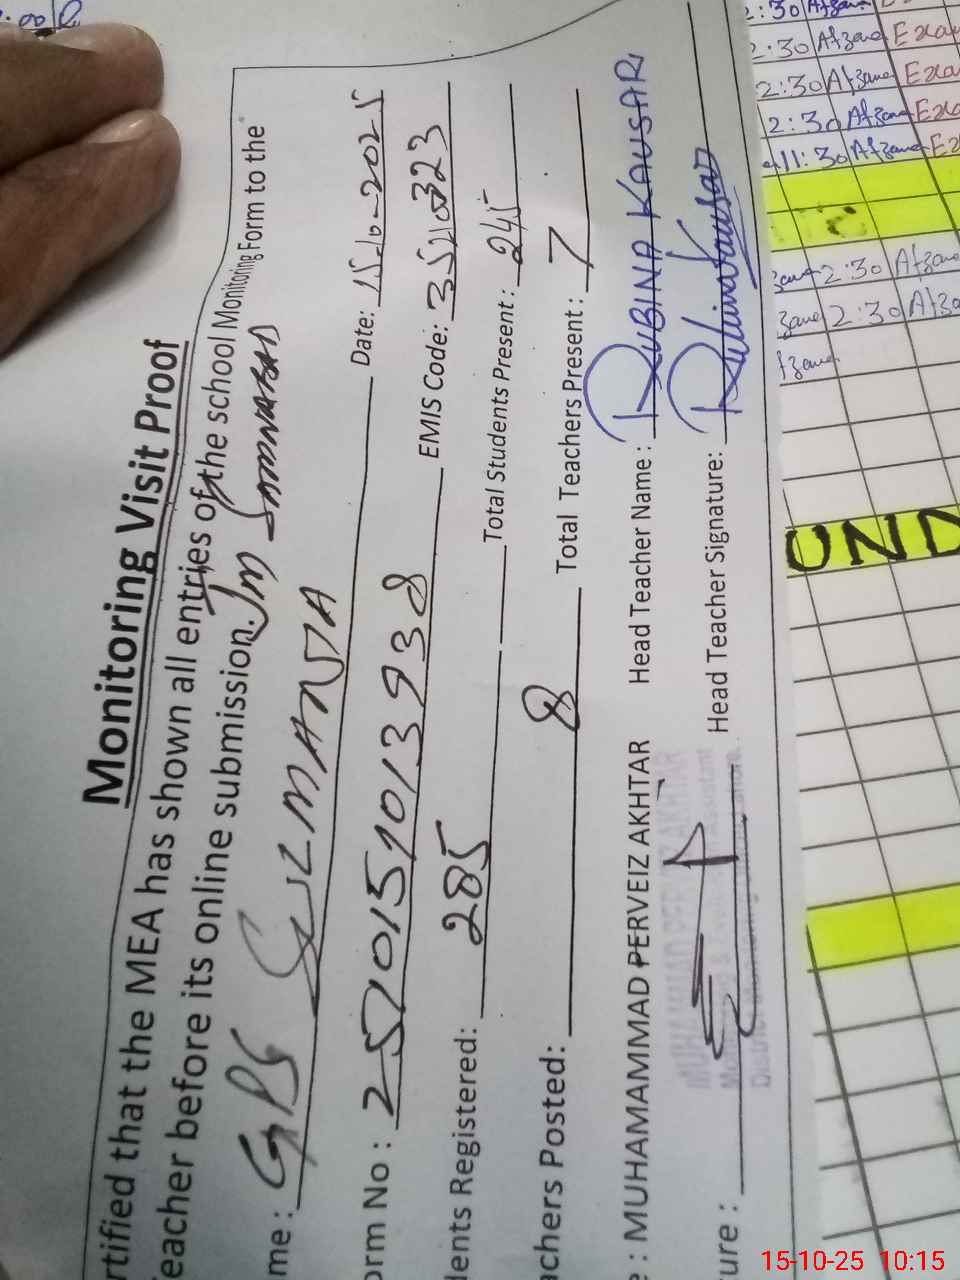 Monitoring Visit Proof
rtified that the MEA has shown all entries of the school Monitoring Form to the
eacher before its online submission.
me : GPS Date: 15-10-2025
orm No : EMIS Code: 35210323
dents Registered: 285 Total Students Present : 245
achers Posted: 8 Total Teachers Present : 7
e : MUHAMAMMAD PERVEIZ AKHTAR Head Teacher Name : RUBINA KAUSAR
ture : Head Teacher Signature: Rubina Kausar
MUHAMMAD PERVEIZ AKHTAR
2:30 Afzane
2:30 Afzane Exa
2:30 Afzane Exa
2:30 Afzane Exa
11:30 Afzane Exa
zane 2:30 Afzane
zane 2:30 Afza
fzane
UND
15-10-25 10:15